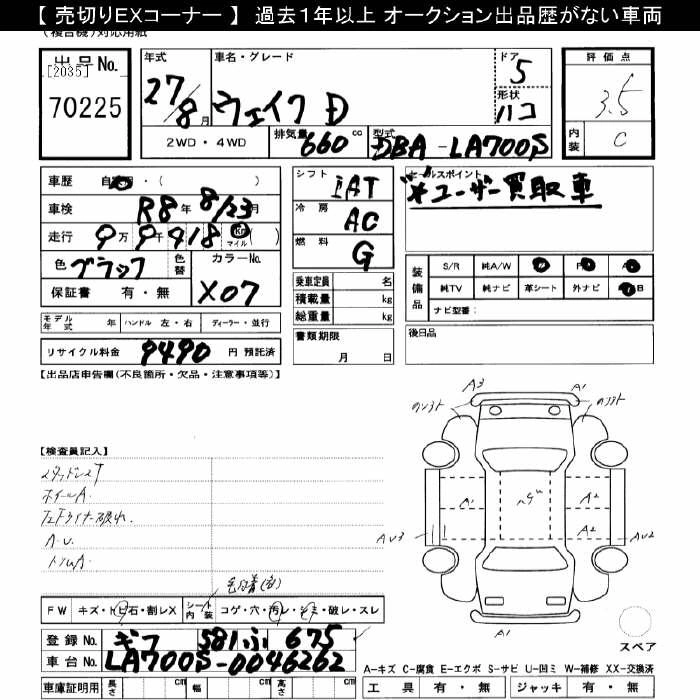 【 売切りEXコーナー 】 過去1年以上 オークション出品歴がない車両
(複合機)対応用紙
出品No. 年式 車名・グレード ドア 評価点
[2035]
70225 27/8月 ウェイク D 5 3.5
形状 ハコ
2WD・4WD 排気量 660 cc 型式 DBA-LA700S 内装 C
車歴 自家用・( )
シフト IAT セールスポイント
車検 R8年 8/23月 冷房 AC ※ユーザー買取車
走行 9万 9千 918 km マイル ( ) 燃料 G
色 ブラック 色替 カラーNo.
保証書 有・無 X07
乗車定員 名
積載量 kg
総重量 kg
装備品 S/R 純A/W
純TV 純ナビ 革シート 外ナビ
ナビ型番:
モデル年式 年 ハンドル 左・右 ディーラー・並行
書類期限 月 日
後日品
リサイクル料金 9490 円 預託済
【出品店申告欄(不良箇所・欠品・注意事項等)】
A3 A1
【検査員記入】
スタッドレス
ホイールA.
A.U.
トリムA.
A1 A2
AU3 A2 AU2
A1
FW キズ・トビ石・割レX シート内装 コゲ・穴・汚レ・シミ・破レ・スレ
登録No. ギフ 581 ふ 675
車台No. LA700S-0046262
スペア
A-キズ C-腐食 E-エクボ S-サビ U-凹ミ W-補修 XX-交換済
車庫証明用 長さ cm 幅 cm 高さ cm
工具 有・無 ジャッキ 有・無